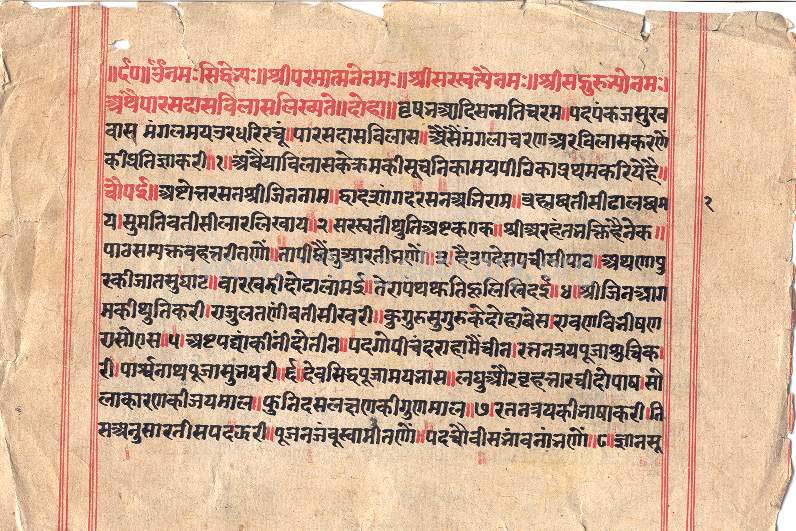 ॥८९०॥ ॐनमःसिद्धेभ्यः॥श्रीपरमात्मनेनमः॥श्रीसरस्वत्यैनमः॥श्रीसद्गुरुभ्योनमः॥
अथैपारसदासविलासलिख्यते॥दोहा॥वृषभआदिसन्मतिचरम॥पदपंकजसुख
वास मंगलमयउरधरिरचूं॥पारसदासविलास॥ऐसैंमंगलाचरणअरविलासकरणें
कीप्रतिज्ञाकरी।१।अबैंयाविलासकेक्रमकीसूचनिकामयपीठिकाप्रथमकरियेहै॥
चौपई॥अष्टोत्तरसतश्रीजिननाम॥द्वादशांगदरसनअभिराम॥ब्रह्मबतीसीढालष्टम
य।सुमतिबतीसीलारलिखाय।२।सरस्वतीथुतिअष्टकएक॥श्रीअरहंतभक्तिहैनेक॥
पाठसम्यक्तबहत्तरीतणों॥तापीछैंबुआरतीभणों॥३॥हैउपदेसपचीसीपाठ॥अथणापु
रकीजातसुघाट॥बारखडीदोढालामई॥तेरापंथथकितिहलिखिदई॥४॥श्रीजिनआग
मकीथुतिकरी।राजुलतणींबतीसीखरी॥कुगुरुसुगुरुकेदोहाबेस।रावणविभीषण
रासोएस॥५॥अष्टपद्यांकीनींदोतीन॥पदगोपीचंदराहामैचीन।रत्नत्रयपूजाशुचिक
री।पार्श्वनाथपूजासुभधरी॥६॥देवसिद्धपूजामयभास॥लघुऔरबृहत्भारचीदोपाष।सो
लाकारणकीजयमाल॥फुनिदसलक्षणकीगुणमाल॥७।रतनत्रयकीभाषाकरी।ति
सअनुसारनीसपदढरी॥पूजनजंबूस्वामीतणों॥पदचौवीसभावनांभणों॥८॥ज्ञानसू
२